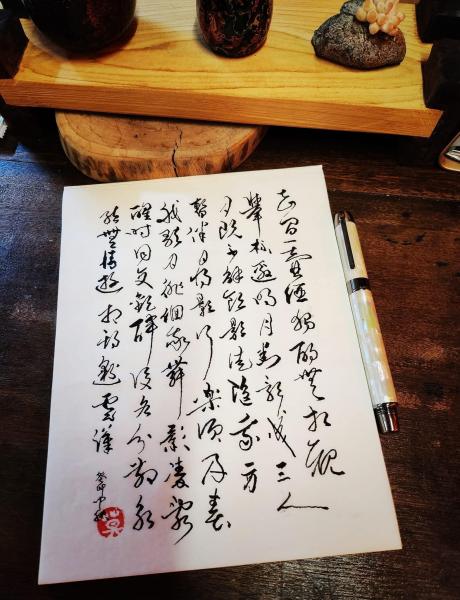 花間一壺酒獨酌無相親
舉杯邀明月對影成三人
月既不解飲影徒隨我身
暫伴月將影行樂須及春
我歌月徘徊我舞影凌亂
醒時同交歡醉後各分散永
結無情遊相期邈雲漢
癸卯中秋